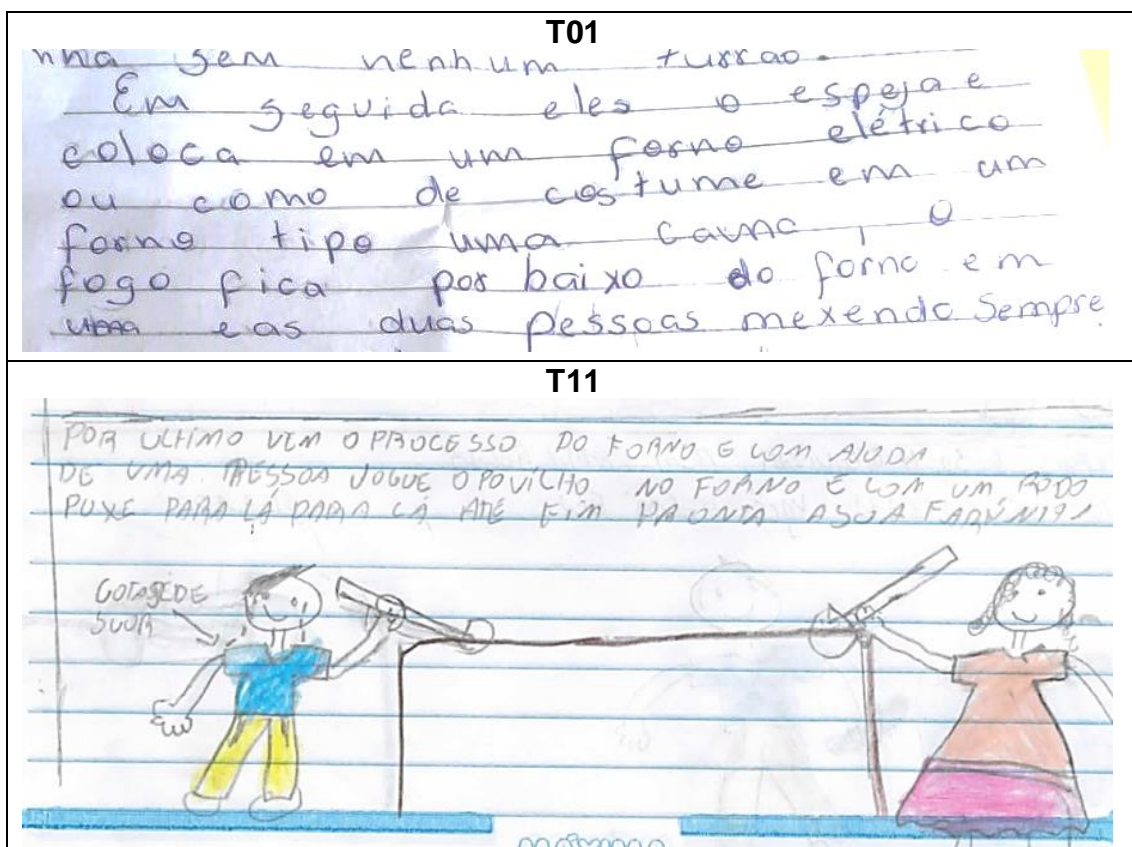 T01
nha sem nenhum turrao.
Em seguida eles o espeja e
coloca em um forno elétrico
ou como de costume em um
forno tipo uma cauna, o
fogo fica por baixo do forno em
uma e as duas pessoas mexendo sempre
T11
POR ULTIMO VEM O PROCESSO DO FORNO E COM AJUDA
DE UMA PESSOA JOGUE O POVILHO NO FORNO E COM UM RODO
PUXE PARA LÁ PARA CÁ ATÉ FIM PRONTA A SUA FARÍNHA
GOTAS DE
SUOR